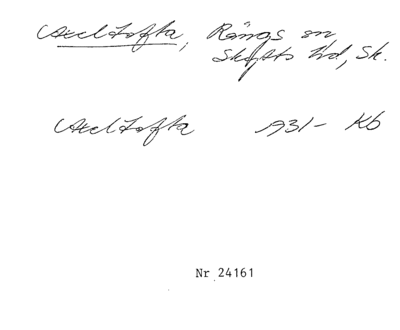 Axeltofta, Rängs sn
Skytts hd, Sk.
Axeltofta 1931- Kb
Nr 24161